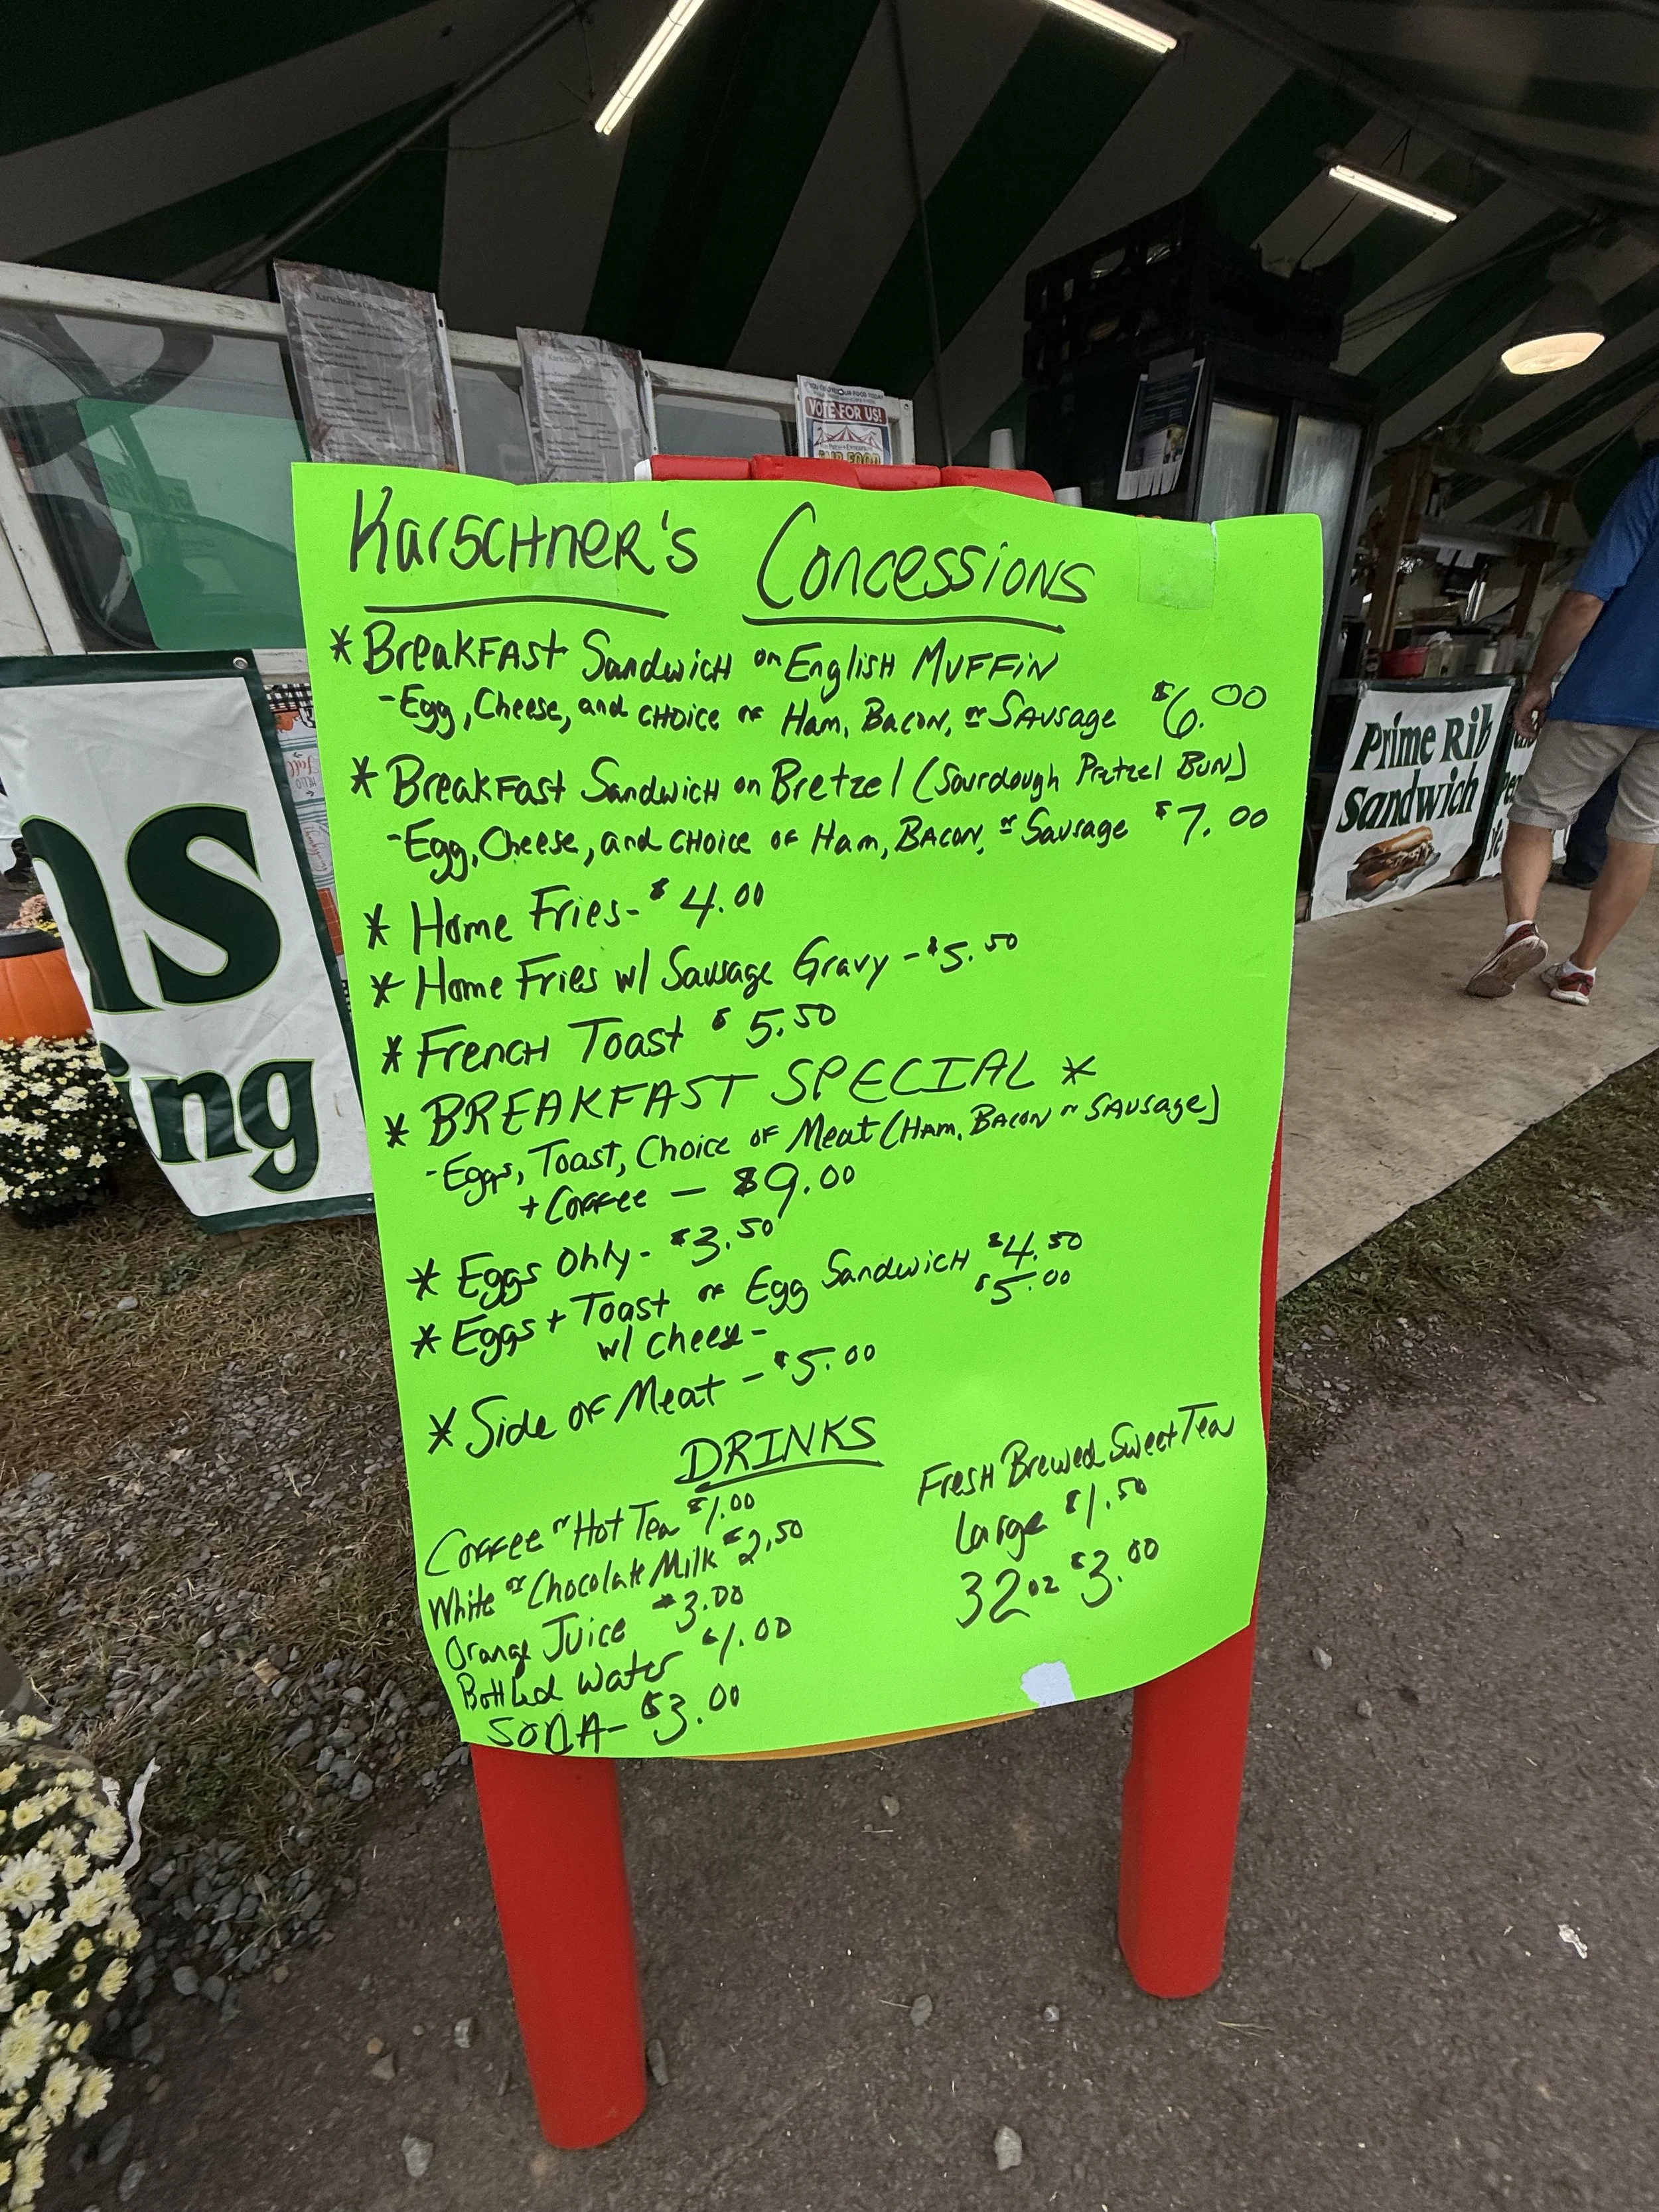 Karschner's Concessions
* Breakfast Sandwich on English Muffin
- Egg, Cheese, and choice of Ham, Bacon, or Sausage $6.00
* Breakfast Sandwich on Bretzel (Sourdough Pretzel Bun)
- Egg, Cheese, and choice of Ham, Bacon, or Sausage $7.00
* Home Fries - $4.00
* Home Fries w/ Sausage Gravy - $5.50
* French Toast $5.50
* BREAKFAST SPECIAL *
- Eggs, Toast, Choice of Meat (Ham, Bacon or Sausage)
+ Coffee — $9.00
* Eggs Only - $3.50
* Eggs + Toast or Egg Sandwich $4.50
w/ cheese - $5.00
* Side of Meat - $5.00
DRINKS
Coffee or Hot Tea $1.00
White or Chocolate Milk $2.50
Orange Juice $3.00
Bottled Water $1.00
SODA - $3.00
Fresh Brewed Sweet Tea
Large $1.50
32 oz $3.00
VOTE FOR US!
Prime Rib
Sandwich
ns
ing